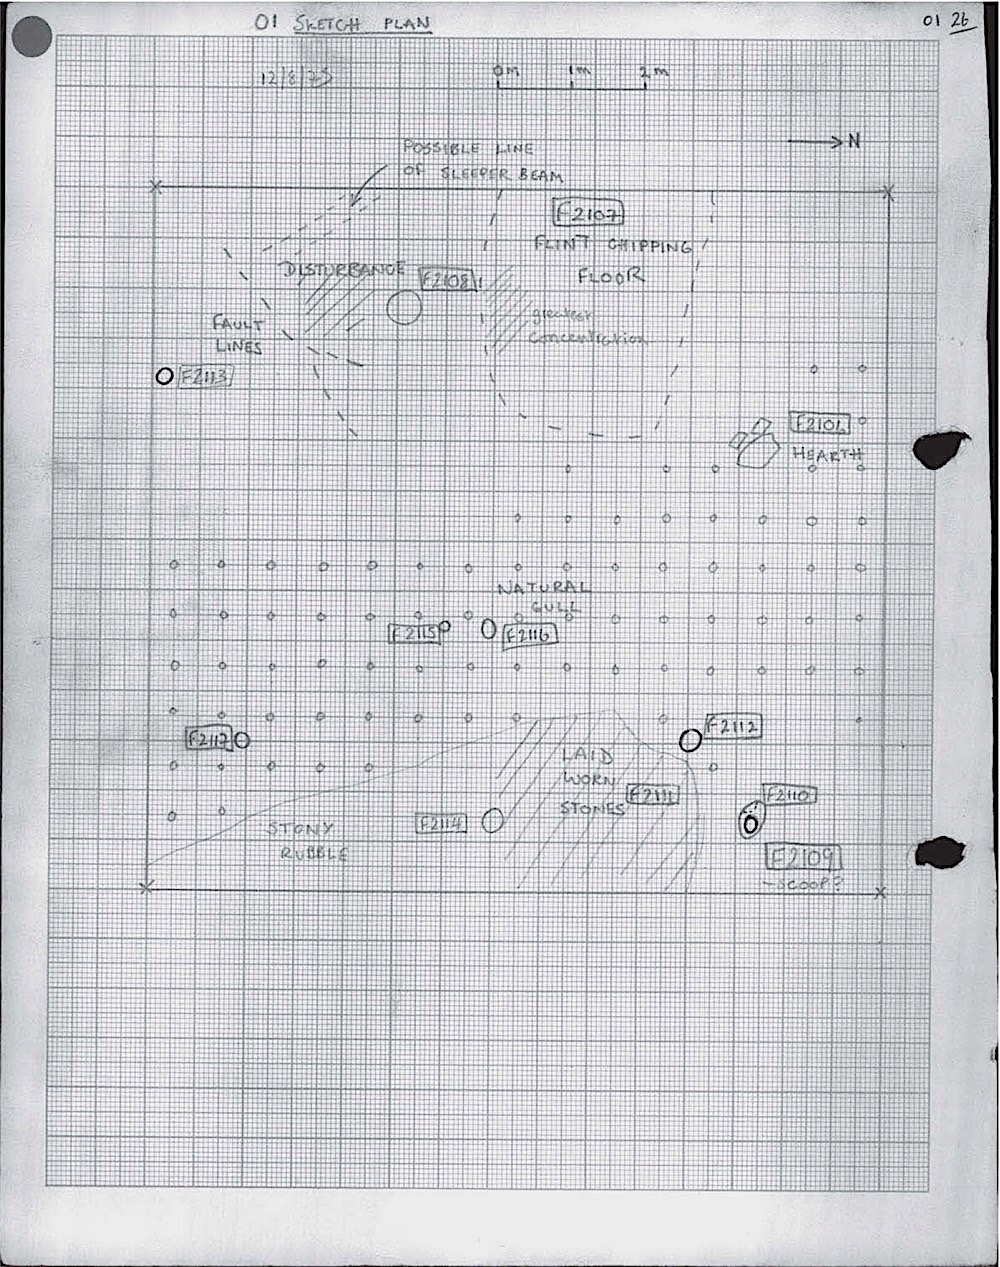 01 SKETCH PLAN
01 26
12/8/75
0M 1m 2m
N
POSSIBLE LINE
OF SLEEPER BEAM
F2107
FLINT CHIPPING
FLOOR
DISTURBANCE
F2108
greatest
concentration
FAULT
LINES
F2113
HEARTH
NATURAL
GULL
F2115
F2116
F2117
F2112
LAID
WORN
STONES
F2111
F2110
F2114
STONY
RUBBLE
F2109
- SCOOP?